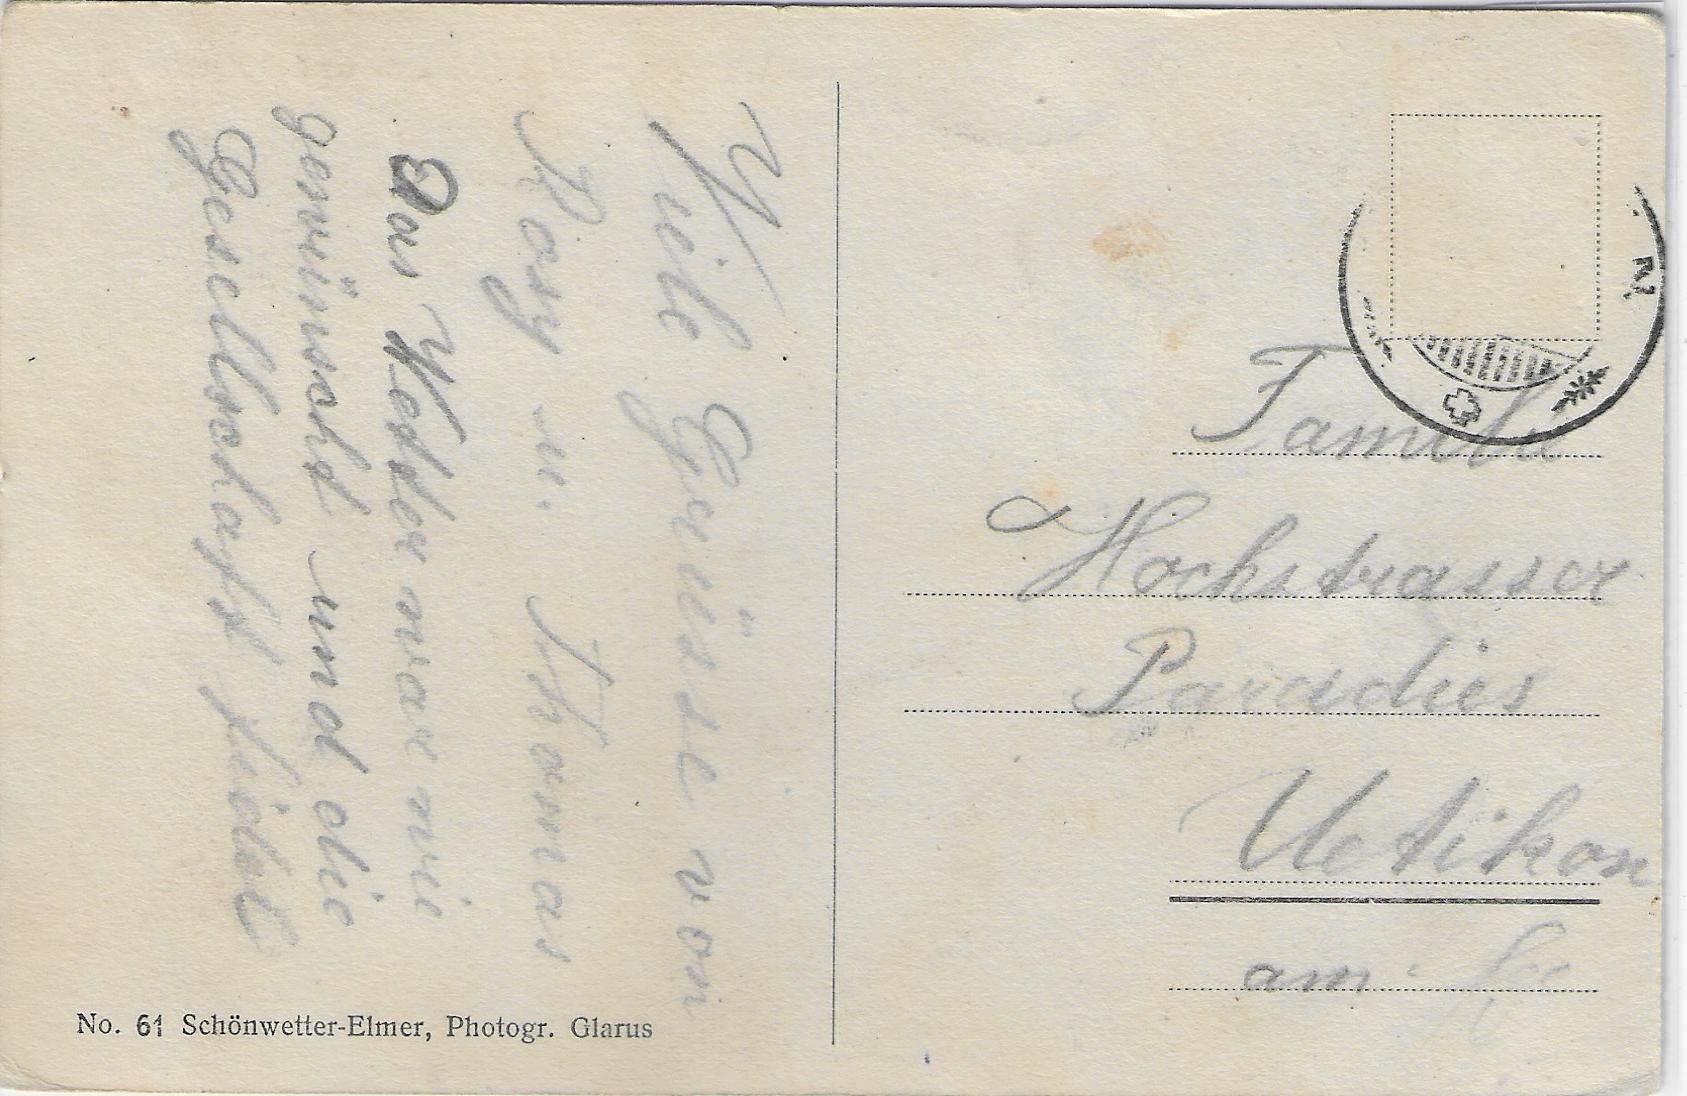 Viele Grüsse von
Rosy u. Thomas
Das Wetter war wie
gewünscht und die
Gesellschaft fidel
Familie
Hochstrasser
Paradies
Uetikon
am See
No. 61 Schönwetter-Elmer, Photogr. Glarus
N